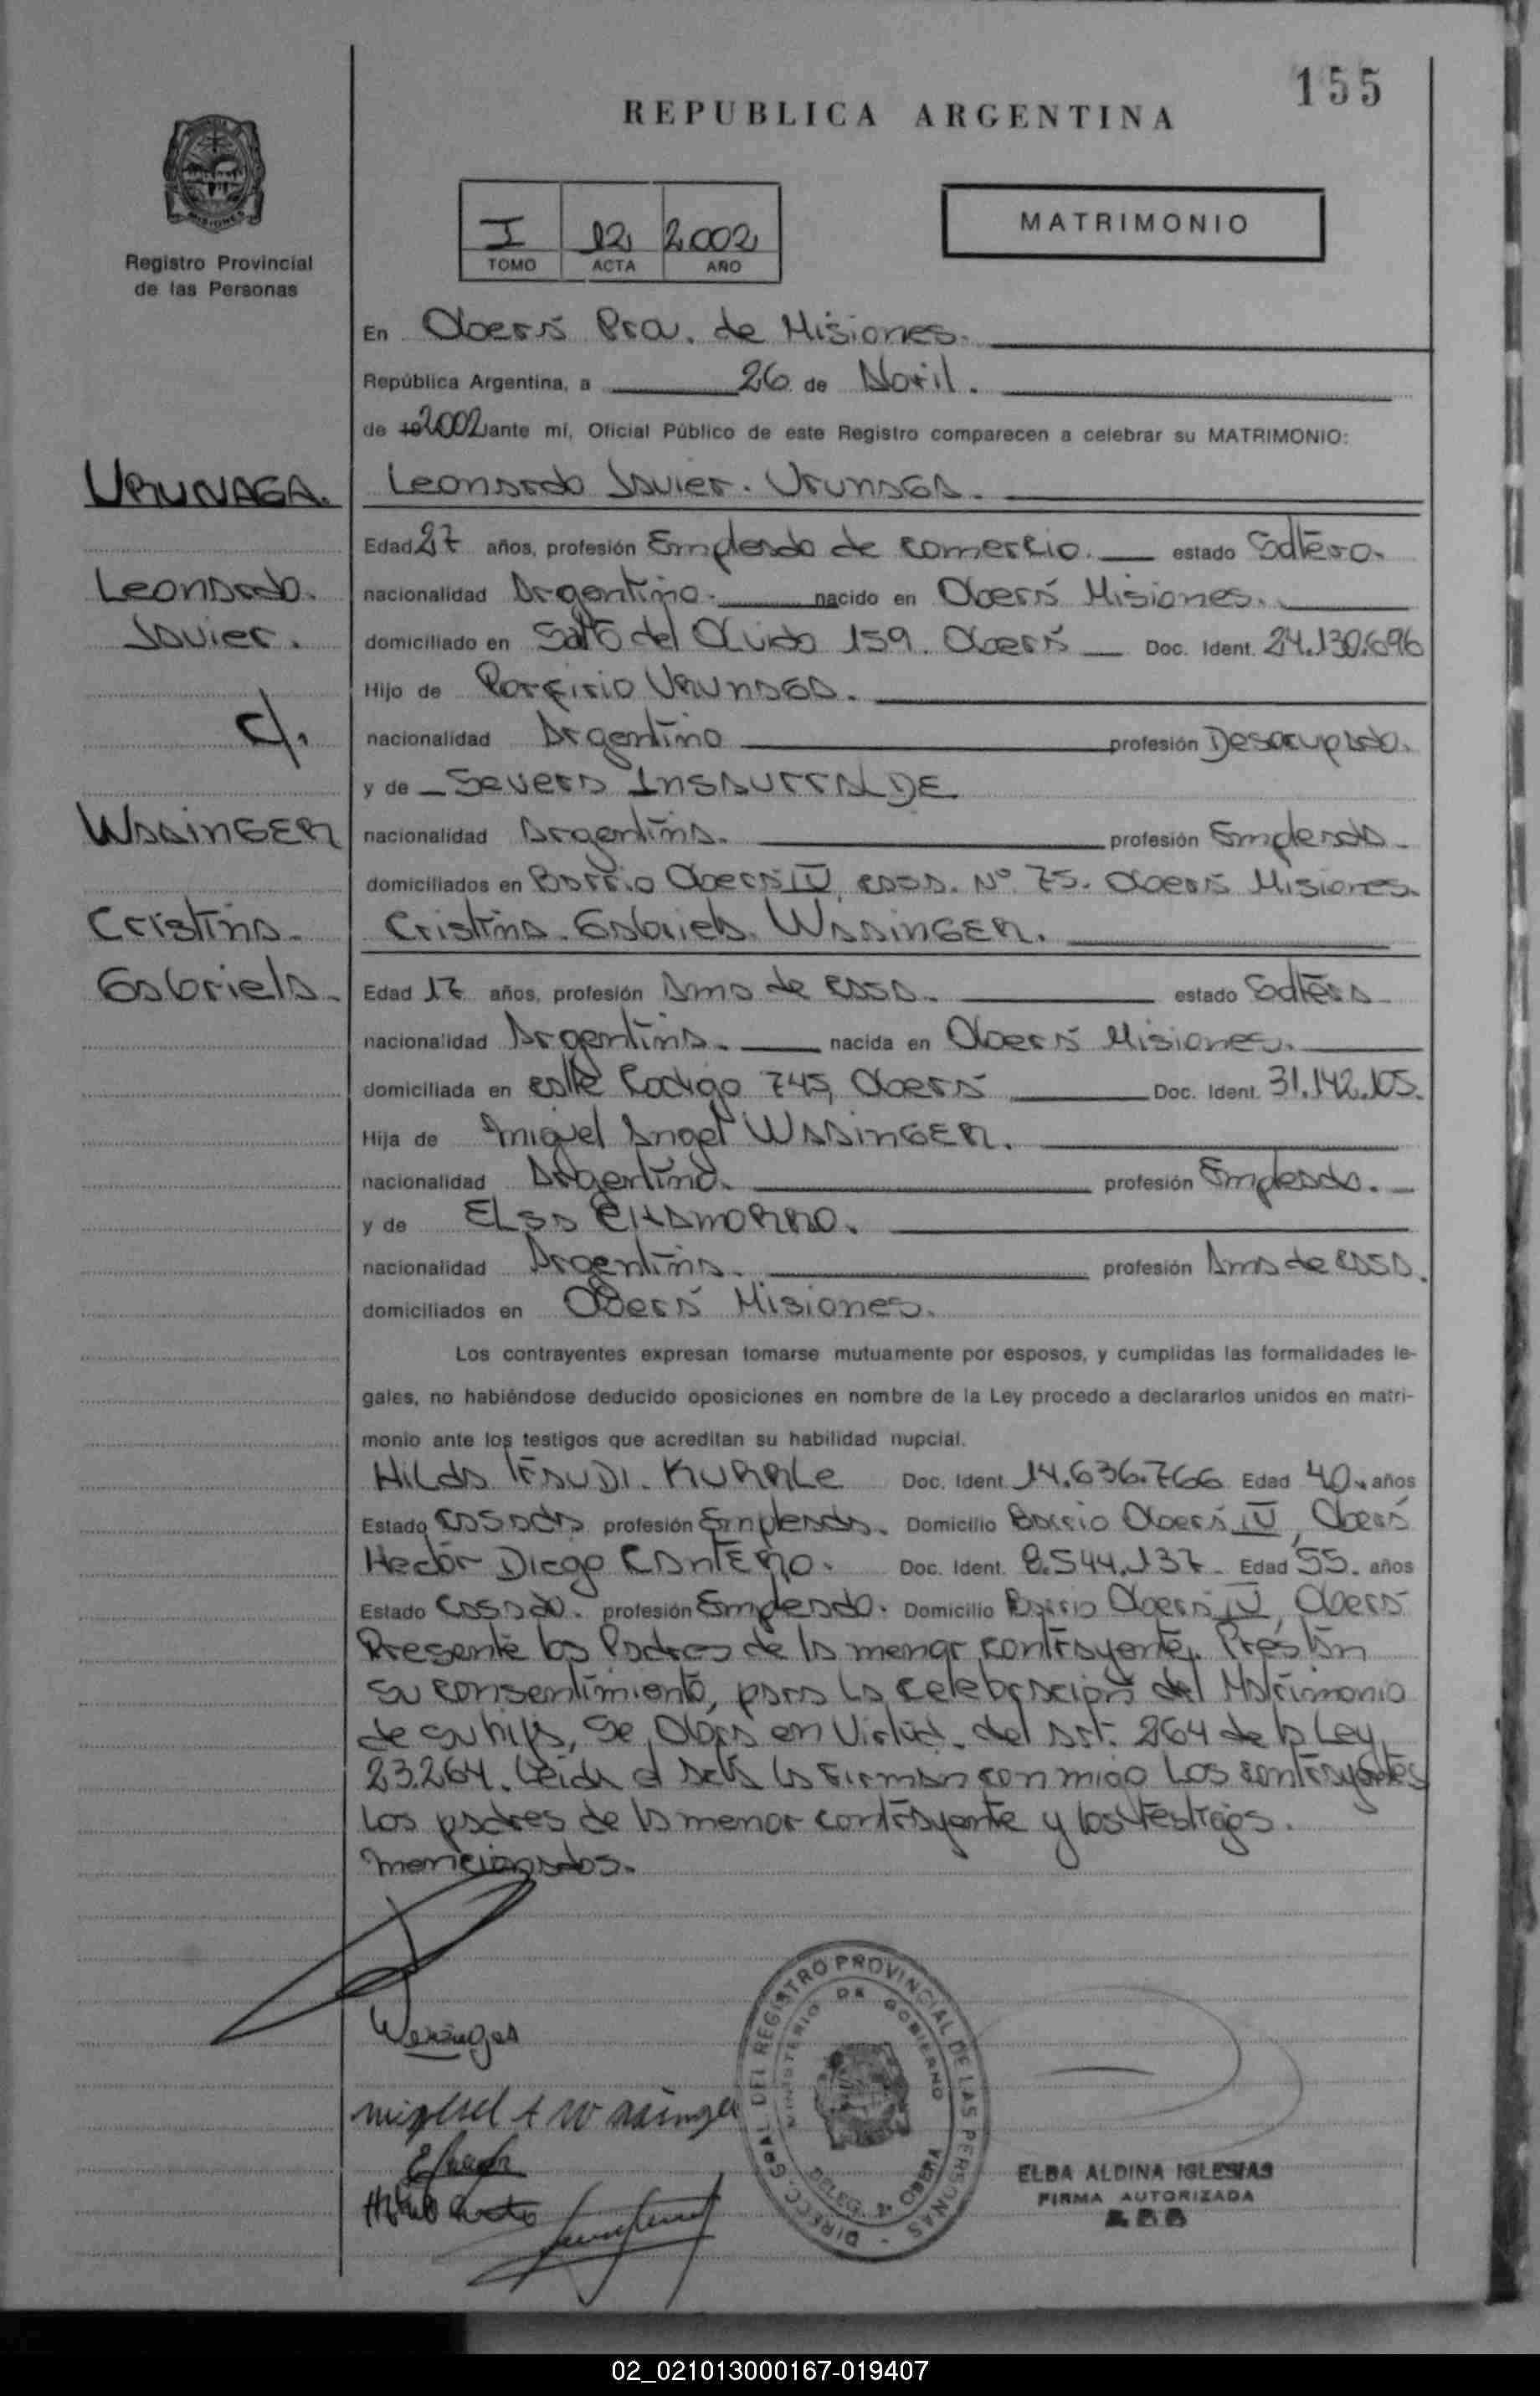 155
REPUBLICA ARGENTINA
MISIONES
Registro Provincial
de las Personas
I 12 2.002
TOMO ACTA AÑO
MATRIMONIO
En Oberá Prov. de Misiones.
República Argentina, a 26 de Abril.
de 19 2002 ante mí, Oficial Público de este Registro comparecen a celebrar su MATRIMONIO:
URUNAGA.
Leonardo
Javier.
c/.
WASINGER
Cristina
Gabriela.
Leonardo Javier. URUNAGA.
Edad 27 años, profesión Empleado de comercio. estado Soltero.
nacionalidad Argentino. nacido en Oberá Misiones.
domiciliado en Salto del 159. Oberá Doc. Ident. 24.130.696
Hijo de Porfirio URUNAGA.
nacionalidad Argentino profesión Desocupado.
y de Severa INSAURRALDE
nacionalidad Argentina. profesión Empleada
domiciliados en Barrio Oberá IV, casa. Nº 75. Oberá Misiones.
Cristina Gabriela WASINGER.
Edad 17 años, profesión Ama de casa. estado Soltera
nacionalidad Argentina. nacida en Oberá Misiones.
domiciliada en calle 745, Oberá Doc. Ident. 31.142.105.
Hija de Miguel Angel WASINGER.
nacionalidad Argentino. profesión Empleado.
y de ELSA CHAMORRO.
nacionalidad Argentina. profesión Ama de casa.
domiciliados en Oberá Misiones.
Los contrayentes expresan tomarse mutuamente por esposos, y cumplidas las formalidades le-
gales, no habiéndose deducido oposiciones en nombre de la Ley procedo a declararlos unidos en matri-
monio ante los testigos que acreditan su habilidad nupcial.
Hilda KURRLE Doc. Ident. 14.636.766 Edad 40. años
Estado Casada profesión Empleada. Domicilio Barrio Oberá IV, Oberá
Hector Diego Doc. Ident. 8.544.137 Edad 55. años
Estado Casado. profesión Empleado. Domicilio Barrio Oberá IV, Oberá
Presente los Padres de la menor contrayente. Prestan
su consentimiento, para la celebración del Matrimonio
de su hija, Se en Virtud. del art. 264 de la Ley
23.264. Leida el acta la Firman con migo Los contrayentes
Los padres de la menor contrayente y los testigos.
mencionados.
DIRECC. GRAL. DEL REGISTRO PROVINCIAL DE LAS PERSONAS
MINISTERIO DE GOBIERNO
OBERA
ELBA ALDINA IGLESIAS
FIRMA AUTORIZADA
02_021013000167-019407